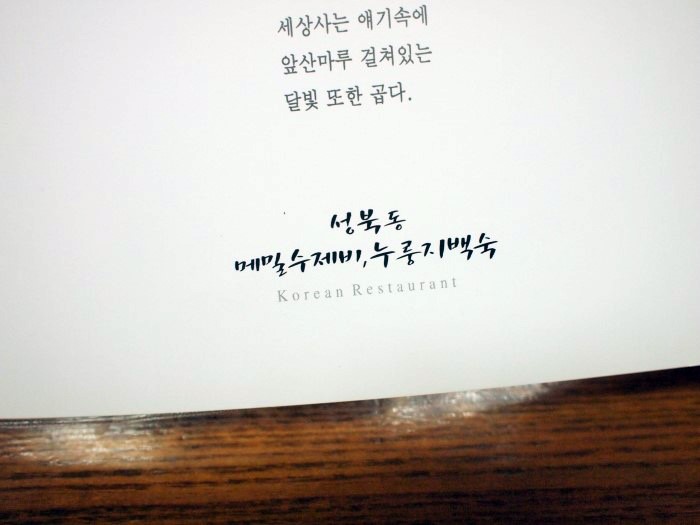 세상사는 얘기속에
앞산마루 걸쳐있는
달빛 또한 곱다.
성북동
메밀수제비,누룽지백숙
Korean Restaurant